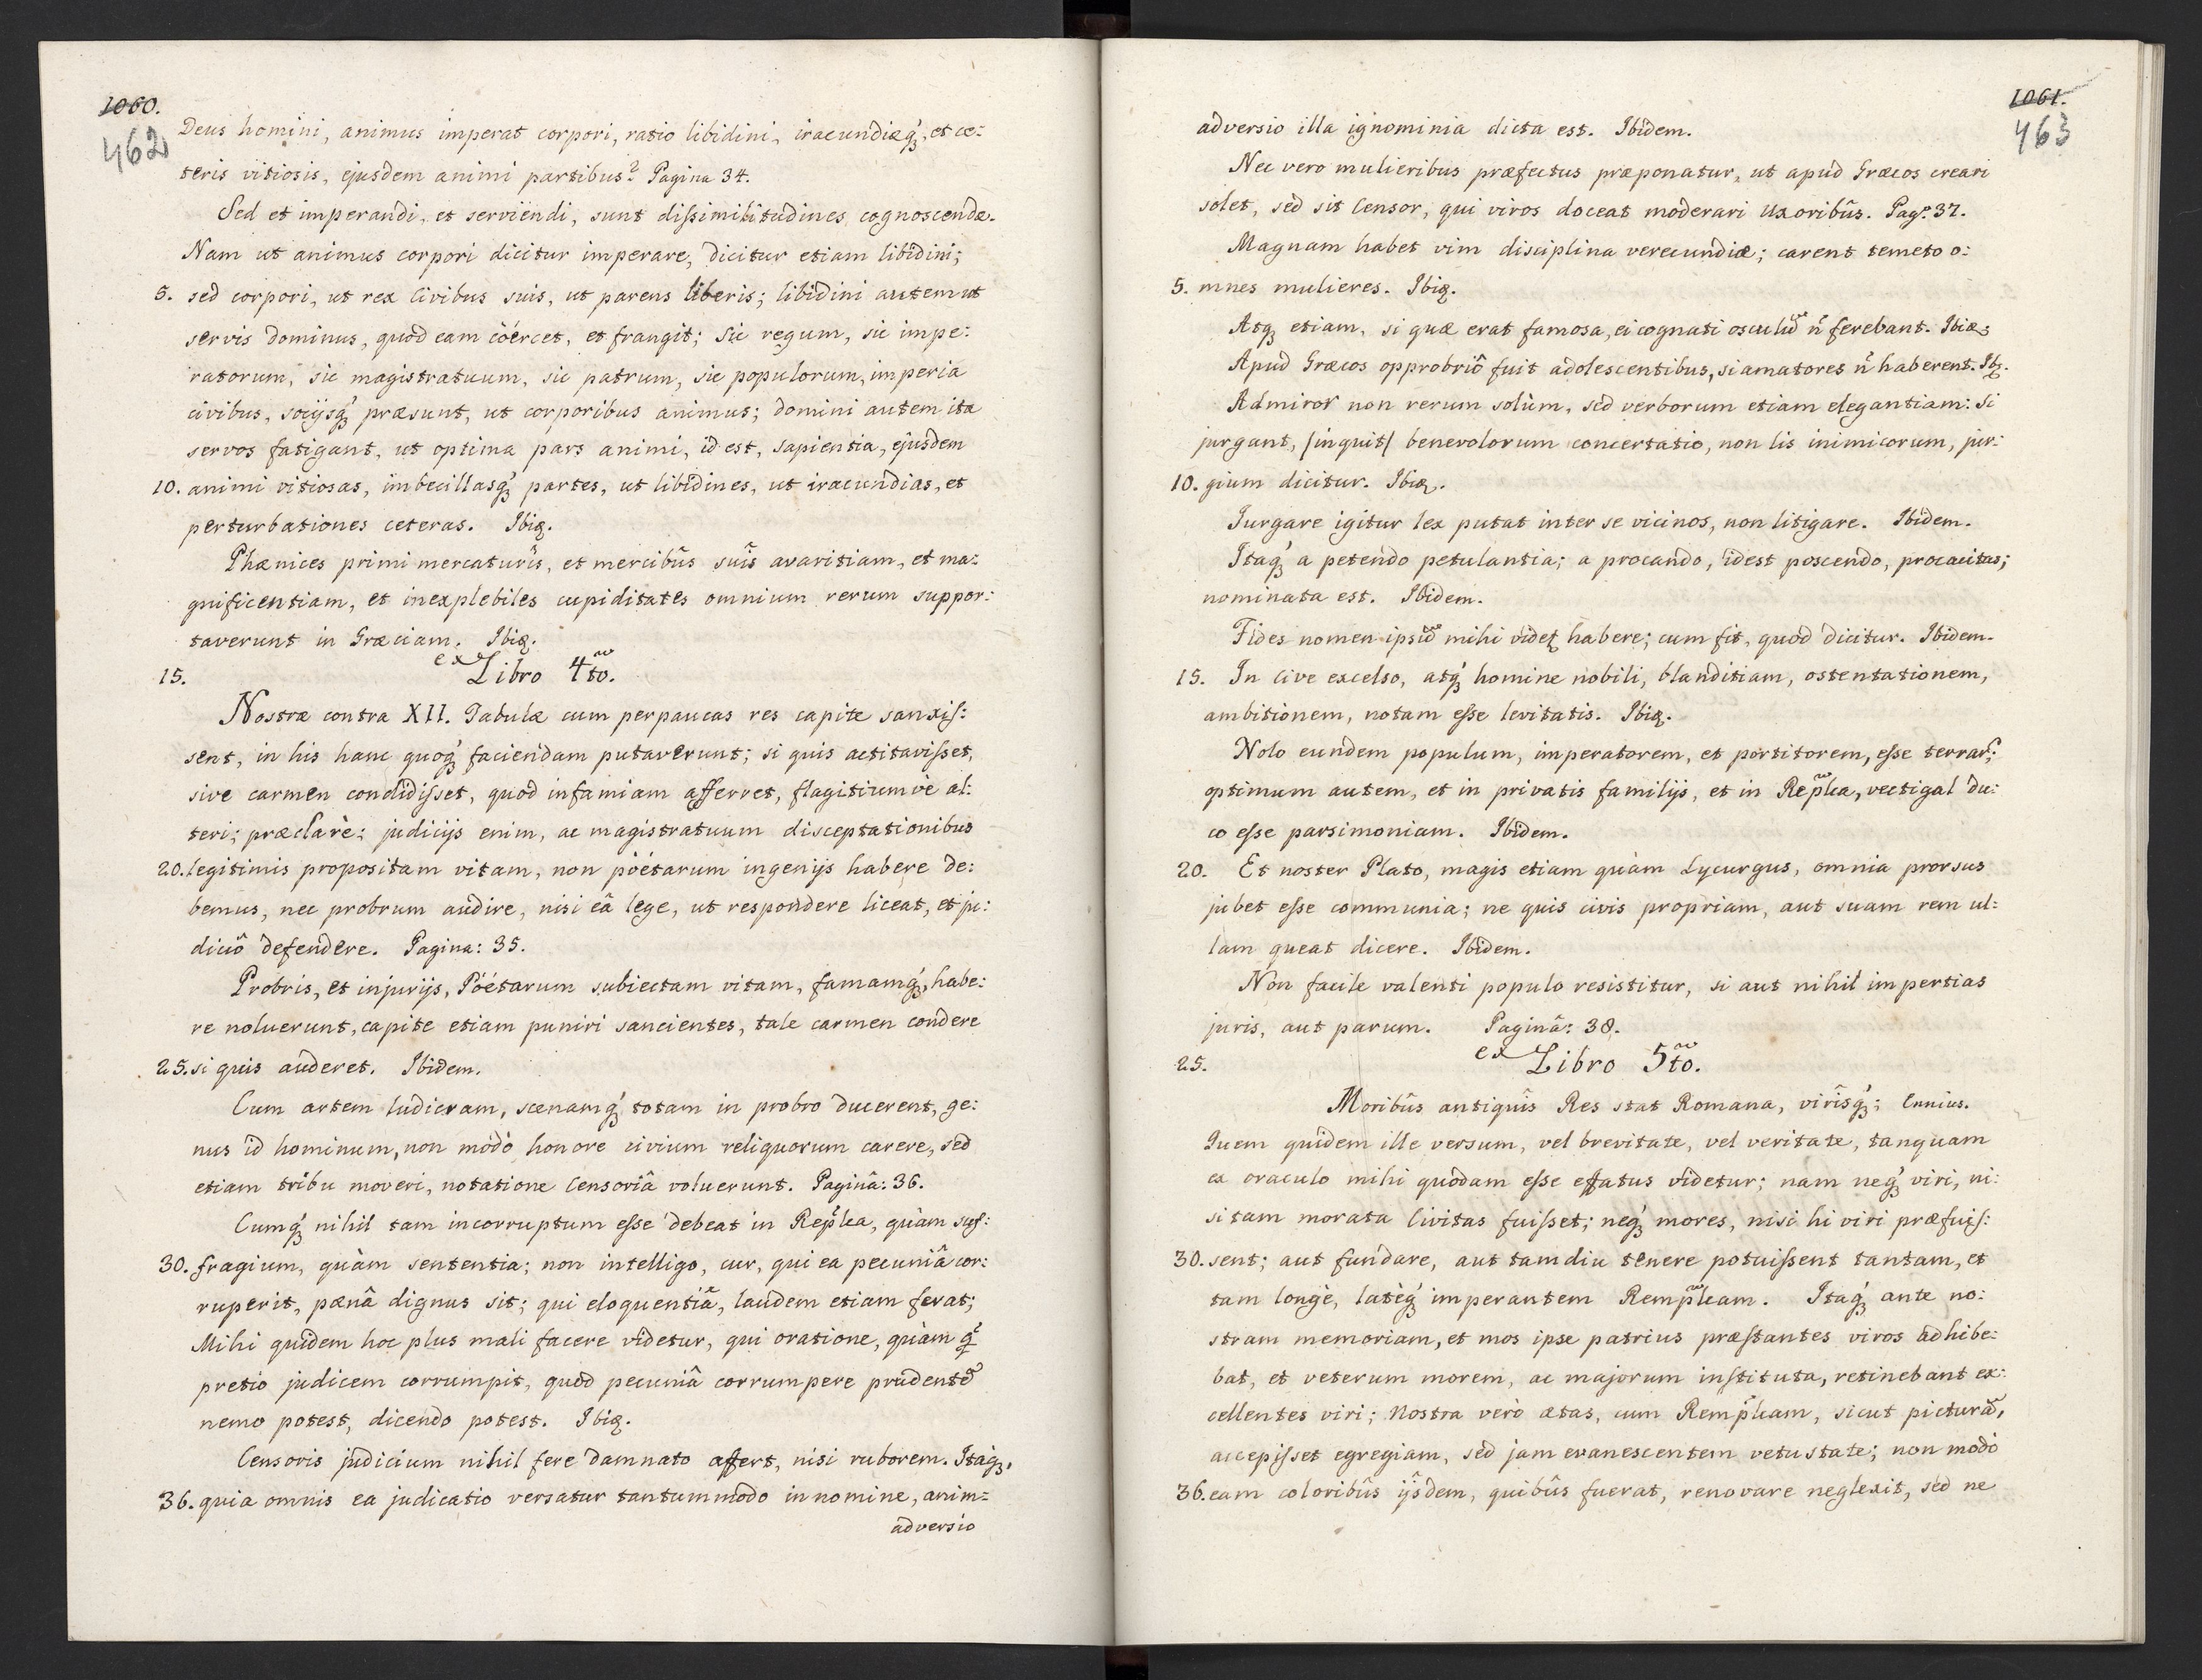 1060.
462
Deus homini, animus imperat corpori, ratio libidini, iracundiæq́ꝫ, et ce:
teris vitiosis, ejusdem animi partibus? Pagina 34.
Sed et imperandi, et serviendi, sunt dißimilitudines cognoscendæ.
Nam ut animus corpori dicitur imperare, dicitur etiam libidini;
5. sed corpori, ut rex Civibus suis, ut parens liberis; libidini autem ut
servis dominus, quod eam cöércet, et frangit; Sic regum, sic impe:
ratorum, sic magistratuum, sic patrum, sic populorum, imperia
civibus, socijsq́ꝫ præsunt, ut corporibus animus; domini autem ita
servos fatigant, ut optima pars animi, id est, sapientia, ejusdem
10. animi vitiosas, imbecillasq́ꝫ partes, ut libidines, ut iracundias, et
perturbationes ceteras. Ibiꝫ.
Phænices primi mercaturîs, et mercibûs suîs avaritiam, et ma:
gnificentiam, et inexplebiles cupiditates omnium rerum suppor:
taverunt in Græciam. Ibiꝫ.
15. ex Libro 4to.
Nostræ contra XII. Tabulæ cum perpaucas res capite sanxiſ:
sent, in his hanc quoq́ꝫ faciendam putaverunt; si quis actitavißet,
sive carmen condidißet, quod infamiam afferret, flagitiumvè al:
teri; præclarè; judicijs enim, ac magistratuum disceptationibus
20. legitimis propositam vitam, non pöétarum ingenijs habere de:
bemus, nec probrum audire, nisi eâ lege, ut respondere liceat, et ju:
diciô defendere. Pagina: 35.
Probris, et injurijs, Pöétarum subiectam vitam, famamq́ꝫ, habe:
re noluerunt, capite etiam puniri sancientes, tale carmen condere
25. si quis auderet. Ibidem.
Cum artem ludicram, scænamq́ꝫ totam in probro ducerent, ge:
nus id hominum, non modò honore civium reliquorum carere, sed
etiam tribu moveri, notatione Censoriâ voluerunt. Paginâ: 36.
Cumq́ꝫ nihil tam incorruptum eße debeat in Rep̃lca, quàm suf:
30. fragium, quàm sententia; non intelligo, cur, qui ea pecuniâ cor:
ruperit, pænâ dignus sit; qui eloquentiâ, laudem etiam ferat;
Mihi quidem hoc plus mali facere videtur, qui oratione, quàm q̃
pretio judicem corrumpit, quod pecuniâ corrumpere prudentẽ
nemo potest, dicendo potest. Ibiꝫ.
Censoris judicium nihil fere damnato affert, nisi ruborem. Itaq́ꝫ,
36. quia omnis ea judicatio versatur tantummodo in nomine, anim=
adversio
1061.
463
adversio illa ignominia dicta est. Ibidem.
Nec vero mulieribus præfectus præponatur, ut apud Græcos creari
solet, sed sit Censor, qui viros doceat moderari Uxoribûs. Pagꝫ. 37.
Magnam habet vim disciplina verecundiæ; carent temeto o:
5. mnes mulieres. Ibiꝫ.
Atqꝫ etiam, si quæ erat famosa, ei cognati osculũ ñ ferebant. Ibiꝫ
Apud Græcos opprobriô fuit adolescentibus, si amatores ñ haberent. Ibꝫ.
Admiror non rerum solùm, sed verborum etiam elegantiam: Si
jurgant, /inquit/ benevolorum concertatio, non lis inimicorum, jur:
10. gium dicitur. Ibiꝫ.
Jurgare igitur lex putat inter se vicinos, non litigare. Ibidem.
Itaq́ꝫ a petendo petulantia; a procando, idest poscendo, procacitas;
nominata est. Ibidem.
Fides nomen ipsũ mihi videtꝫ habere; cum fit, quod dicitur. Ibidem.
15. In Cive excelso, atq́ꝫ homine nobili, blanditiam, ostentationem,
ambitionem, notam eße levitatis. Ibiꝫ.
Nolo eundem populum, imperatorem, et portitorem, eße terrar̃;
optimum autem, et in privatis familijs, et in Rep̃lca, vectigal du:
co eße parsimoniam. Ibidem.
20. Et noster Plato, magis etiam quàm Lycurgus, omnia prorsus
jubet eße communia; ne quis civis propriam, aut suam rem ul:
lam queat dicere. Ibidem.
Non facile valenti populo resistitur, si aut nihil impertias
juris, aut parum. Paginâ: 38.
25. ex Libro 5to.
Moribûs antiquîs Res stat Romana, virîsq́ꝫ; Ennius.
Quem quidem ille versum, vel brevitate, vel veritate, tanquam
ex oraculo mihi quodam eße effatus videtur; nam neq́ꝫ viri, ni:
si tam morata Civitas fuißet; neq́ꝫ mores, nisi hi viri præfuiſ:
30. sent; aut fundare, aut tamdiu tenere potuißent tantam, et
tam longè, latèq́ꝫ imperantem Remp̃lcam. Itaq́ꝫ ante no:
stram memoriam, et mos ipse patrius præstantes viros adhibe:
bat, et veterum morem, ac majorum instituta, retinebant ex:
cellentes viri; Nostra verò ætas, cum Remp̃lcam, sicut picturã,
accepißet egregiam, sed jam evanescentem vetustate; non modò
36. eam coloribûs ijsdem, quibûs fuerat, renovare neglexit, sed ne